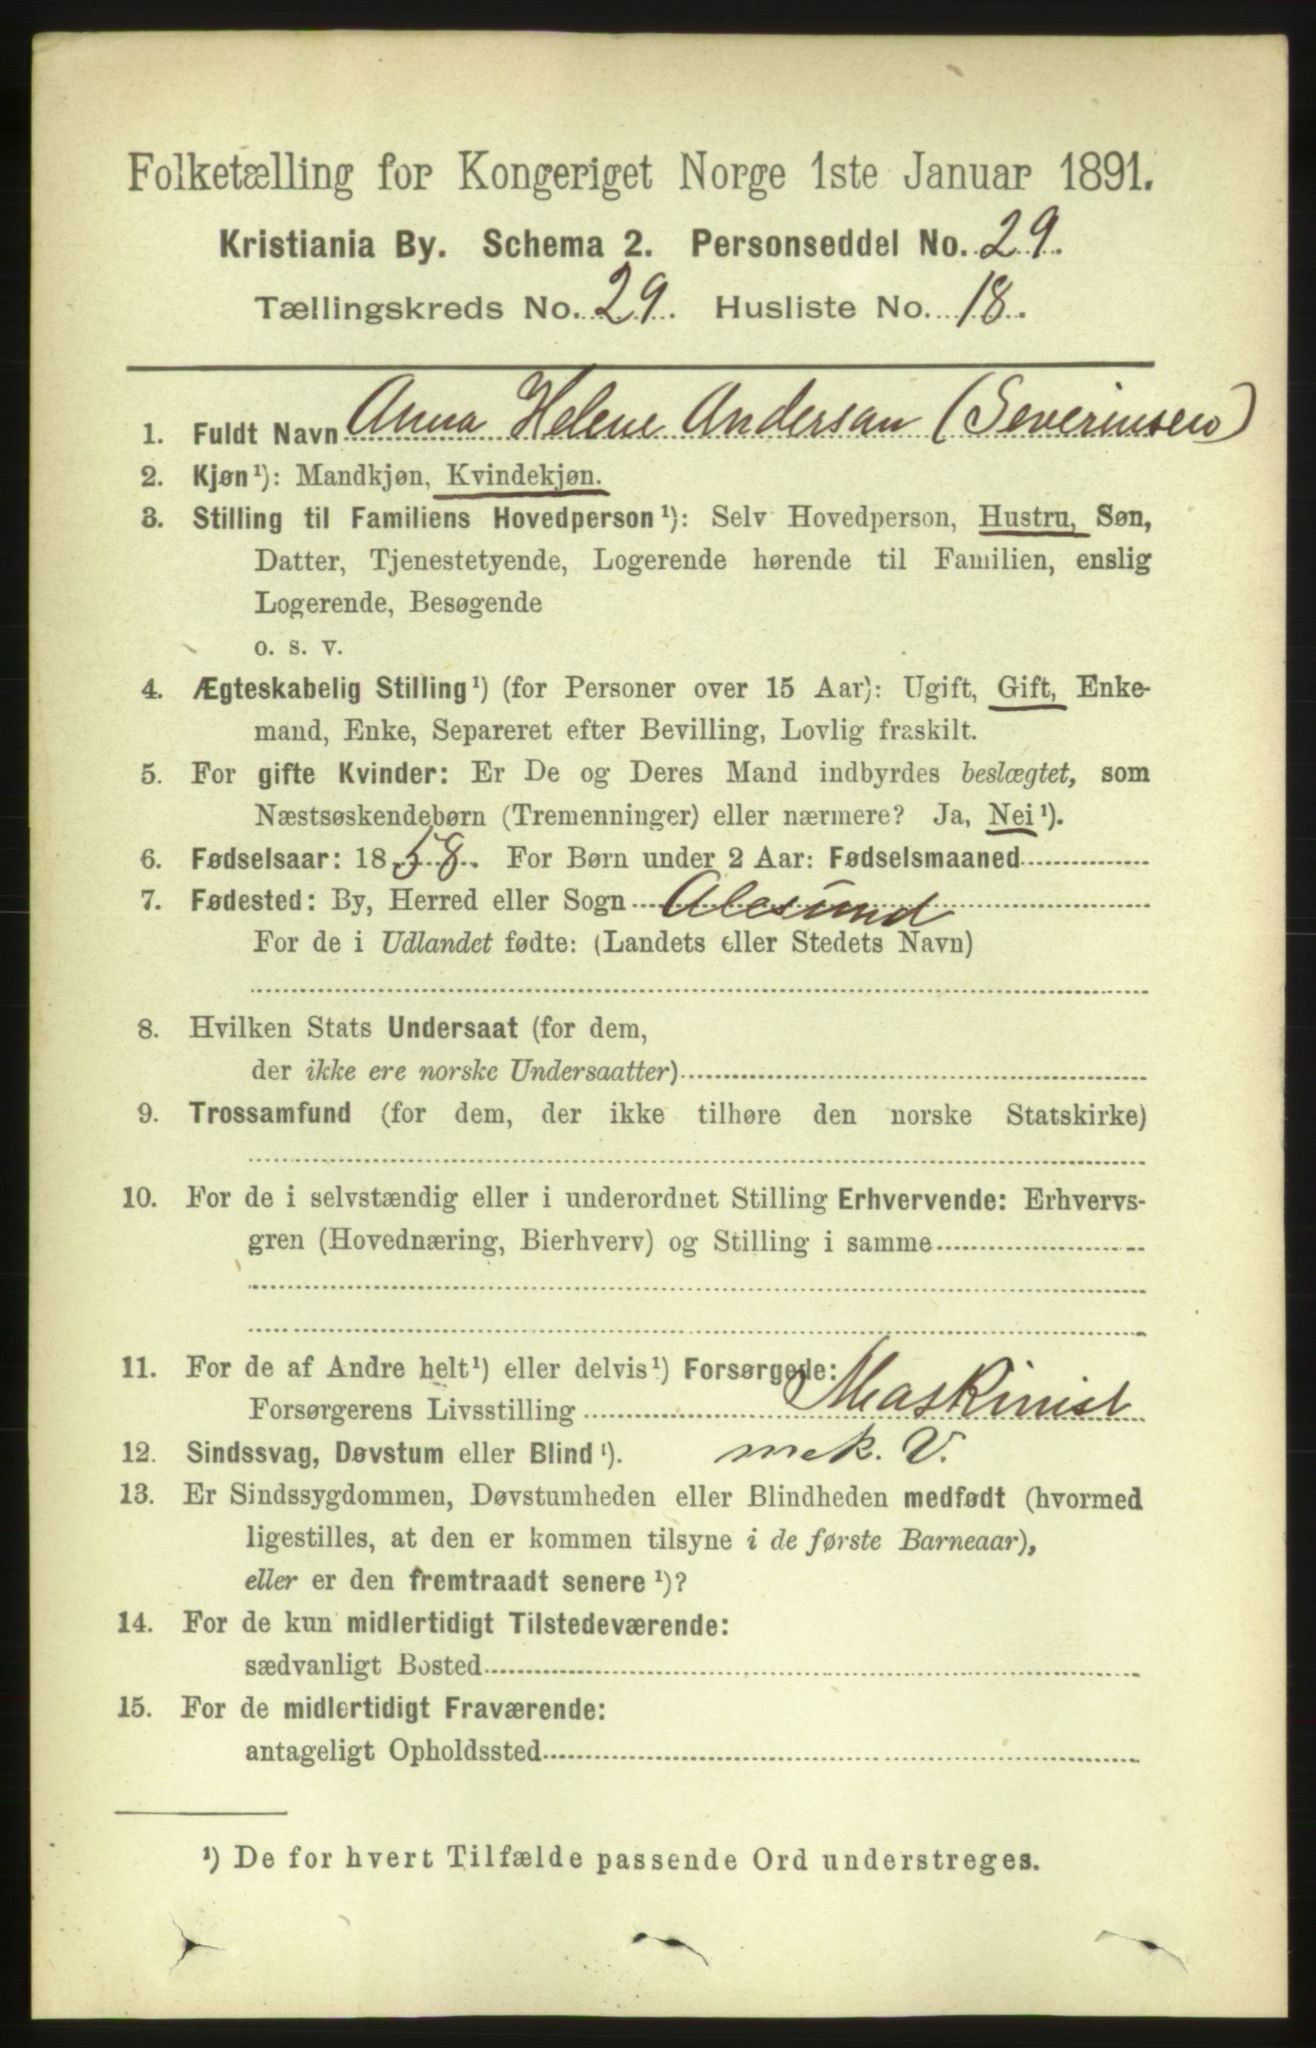 Folketælling for Kongeriget Norge 1ste Januar 1891.
Kristiania By. Schema 2. Personseddel No. 29.
Tællingskreds No. 29. Husliste No. 18.
1. Fuldt Navn Anna Helene Andersan (Severinsen)
2. Kjøn¹): Mandkjøn, Kvindekjøn.
3. Stilling til Familiens Hovedperson¹): Selv Hovedperson, Hustru, Søn,
Datter, Tjenestetyende, Logerende hørende til Familien, enslig
Logerende, Besøgende
o. s. v.
4. Ægteskabelig Stilling¹) (for Personer over 15 Aar): Ugift, Gift, Enke-
mand, Enke, Separeret efter Bevilling, Lovlig fraskilt.
5. For gifte Kvinder: Er De og Deres Mand indbyrdes beslægtet, som
Næstsøskendebørn (Tremenninger) eller nærmere? Ja, Nei¹).
6. Fødselsaar: 1858. For Børn under 2 Aar: Fødselsmaaned
7. Fødested: By, Herred eller Sogn Alesund
For de i Udlandet fødte: (Landets eller Stedets Navn)
8. Hvilken Stats Undersaat (for dem,
der ikke ere norske Undersaatter)
9. Trossamfund (for dem, der ikke tilhøre den norske Statskirke)
10. For de i selvstændig eller i underordnet Stilling Erhvervende: Erhvervs-
gren (Hovednæring, Bierhverv) og Stilling i samme
11. For de af Andre helt¹) eller delvis¹) Forsørgede:
Forsørgerens Livsstilling Maskinist
12. Sindssvag, Døvstum eller Blind¹). mek. V.
13. Er Sindssygdommen, Døvstumheden eller Blindheden medfødt (hvormed
ligestilles, at den er kommen tilsyne i de første Barneaar),
eller er den fremtraadt senere¹)?
14. For de kun midlertidigt Tilstedeværende:
sædvanligt Bosted
15. For de midlertidigt Fraværende:
antageligt Opholdssted
¹) De for hvert Tilfælde passende Ord understreges.